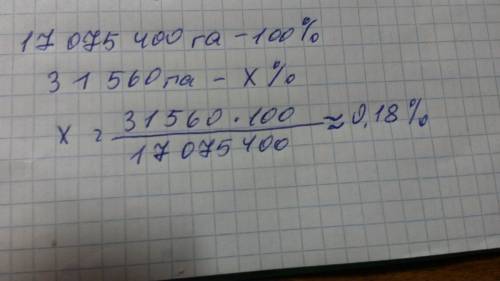 17 075 400 га - 100%
31 560 га - X%
X = 31560 · 100 / 17 075 400 ≈ 0,18%